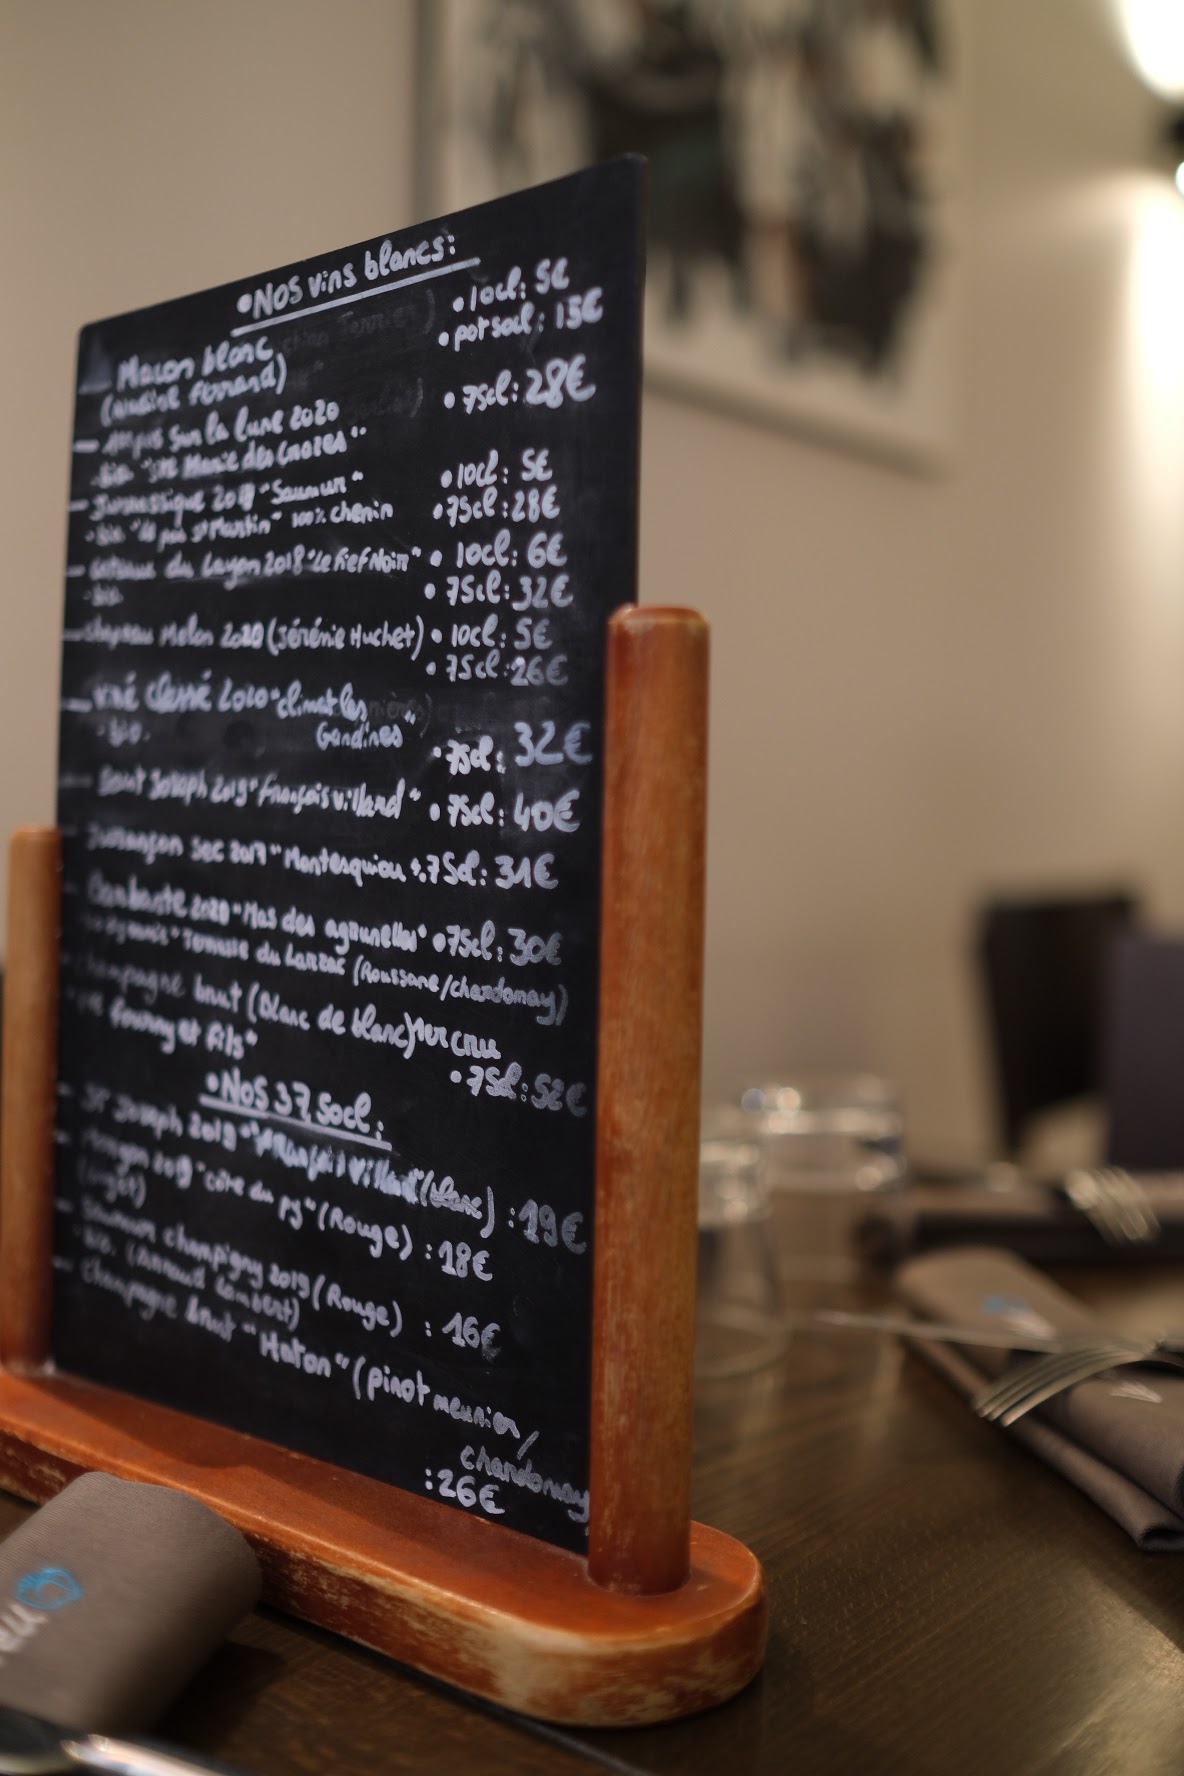 •Nos vins blancs:
•10cl: 5€
•pot 50cl: 15€
— Macon blanc
(Nadine Ferrand)
•75cl: 28€
— sur la lune 2020
-bio "Ste Marie des Crozes"
•10cl: 5€
— Jurassique 2019 "Saumur"
•75cl: 28€
-bio "St Martin" 100% chenin
— Coteaux du Layon 2018 "Le Fief Noir" • 10cl: 6€
-bio.
• 75cl: 32€
— Chapeau Melon 2020 (Jérémie Huchet) • 10cl: 5€
• 75cl: 26€
— Viré Clessé 2020 "climat les
-bio.
Gandines"
•75cl: 32€
— Saint Joseph 2019 "François Villard" • 75cl: 40€
— Jurançon sec 2017 "Montesquiou" •75cl: 31€
2020 "Mas des agrunelles" •75cl: 30€
Terrasse du Larzac (Roussane/chardonnay)
Champagne brut (Blanc de blanc) 1er cru
fourny et fils"
•75cl: 52€
•Nos 37,50cl:
— St Joseph 2019 "François Villard" (blanc) : 19€
2019 "côte du py" (Rouge) : 18€
— Saumur champigny 2019 (Rouge) : 16€
-bio. (Arnaud Lambert)
— Champagne brut "Haton" (pinot meunier/
chardonnay
:26€